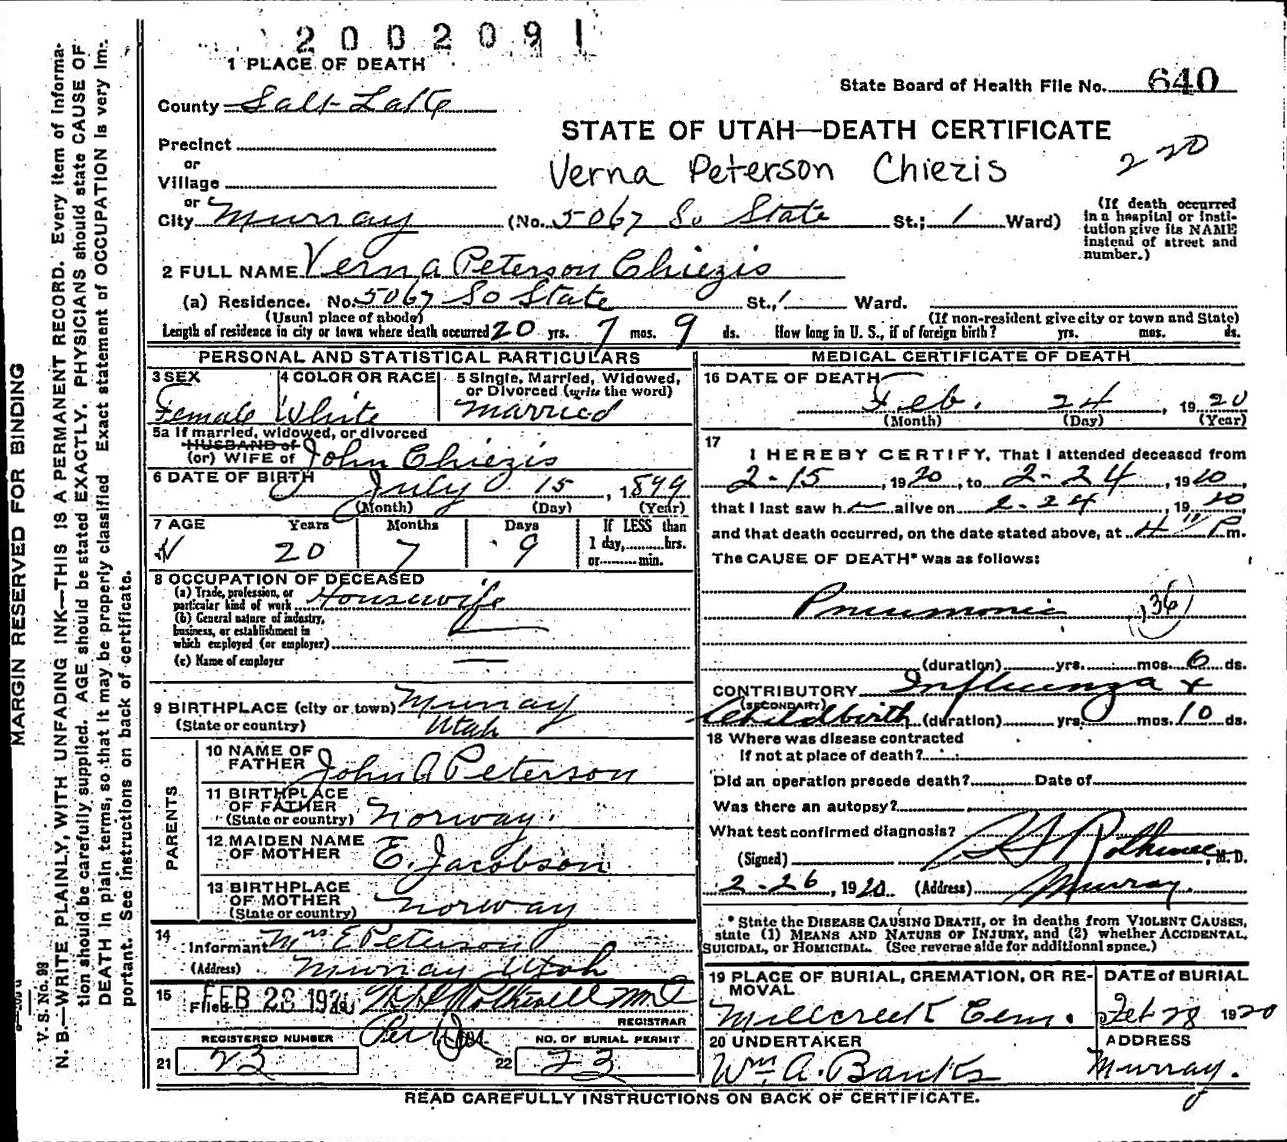 2002091
1 PLACE OF DEATH
State Board of Health File No. 640
County Salt Lake
STATE OF UTAH—DEATH CERTIFICATE
Precinct
Verna Peterson Chiezis
220
or
Village
or
City Murray (No. 5067 So State St.; 1 Ward)
(If death occurred in a hospital or insti-
tution give its NAME
instead of street and
number.)
2 FULL NAME Verna Peterson Chiezis
(a) Residence. No. 5067 So State St., 1 Ward.
(Usual place of abode) (If non-resident give city or town and State)
Length of residence in city or town where death occurred 20 yrs. 7 mos. 9 ds. How long in U. S., if of foreign birth? yrs. mos. ds.
PERSONAL AND STATISTICAL PARTICULARS
3 SEX 4 COLOR OR RACE 5 Single, Married, Widowed,
or Divorced (write the word)
Female White Married
5a If married, widowed, or divorced
HUSBAND of
(or) WIFE of John Chiezis
6 DATE OF BIRTH July 15, 1899
(Month) (Day) (Year)
7 AGE Years Months Days If LESS than
1 day, hrs.
or min.
20 7 9
8 OCCUPATION OF DECEASED
(a) Trade, profession, or
particular kind of work Housewife
(b) General nature of industry,
business, or establishment in
which employed (or employer)
(c) Name of employer —
9 BIRTHPLACE (city or town) Murray
(State or country) Utah
PARENTS
10 NAME OF
FATHER John A Peterson
11 BIRTHPLACE
OF FATHER
(State or country) Norway.
12 MAIDEN NAME
OF MOTHER E. Jacobson
13 BIRTHPLACE
OF MOTHER
(State or country) Norway
14
Informant Mrs E Peterson
(Address) Murray Utah
15 Filed FEB 28 1920 Rothwell MD
REGISTRAR
REGISTERED NUMBER NO. OF BURIAL PERMIT
21 23 22 23
MEDICAL CERTIFICATE OF DEATH
16 DATE OF DEATH
Feb. 24, 1920
(Month) (Day) (Year)
17
I HEREBY CERTIFY, That I attended deceased from
2-15, 1920, to 2-24, 1920,
that I last saw h alive on 2-24, 1920
and that death occurred, on the date stated above, at 4 P m.
The CAUSE OF DEATH* was as follows:
Pneumonia (36)
(duration) yrs. mos. 6 ds.
CONTRIBUTORY Influenza +
(SECONDARY)
Childbirth (duration) yrs. mos. 10 ds.
18 Where was disease contracted
If not at place of death?
Did an operation precede death? Date of
Was there an autopsy?
What test confirmed diagnosis?
(Signed) Rothwell, M. D.
2-26, 1920 (Address) Murray.
* State the DISEASE CAUSING DEATH, or in deaths from VIOLENT CAUSES,
state (1) MEANS AND NATURE OF INJURY, and (2) whether ACCIDENTAL,
SUICIDAL, or HOMICIDAL. (See reverse side for additional space.)
19 PLACE OF BURIAL, CREMATION, OR RE-
MOVAL
DATE of BURIAL
Millcreek Cem. Feb 28 1920
20 UNDERTAKER ADDRESS
Wm. A. Banks Murray.
READ CAREFULLY INSTRUCTIONS ON BACK OF CERTIFICATE.
MARGIN RESERVED FOR BINDING
V. S. No. 98
N. B.—WRITE PLAINLY, WITH UNFADING INK—THIS IS A PERMANENT RECORD. Every item of informa-
tion should be carefully supplied. AGE should be stated EXACTLY. PHYSICIANS should state CAUSE OF
DEATH in plain terms, so that it may be properly classified. Exact statement of OCCUPATION is very im-
portant. See instructions on back of certificate.